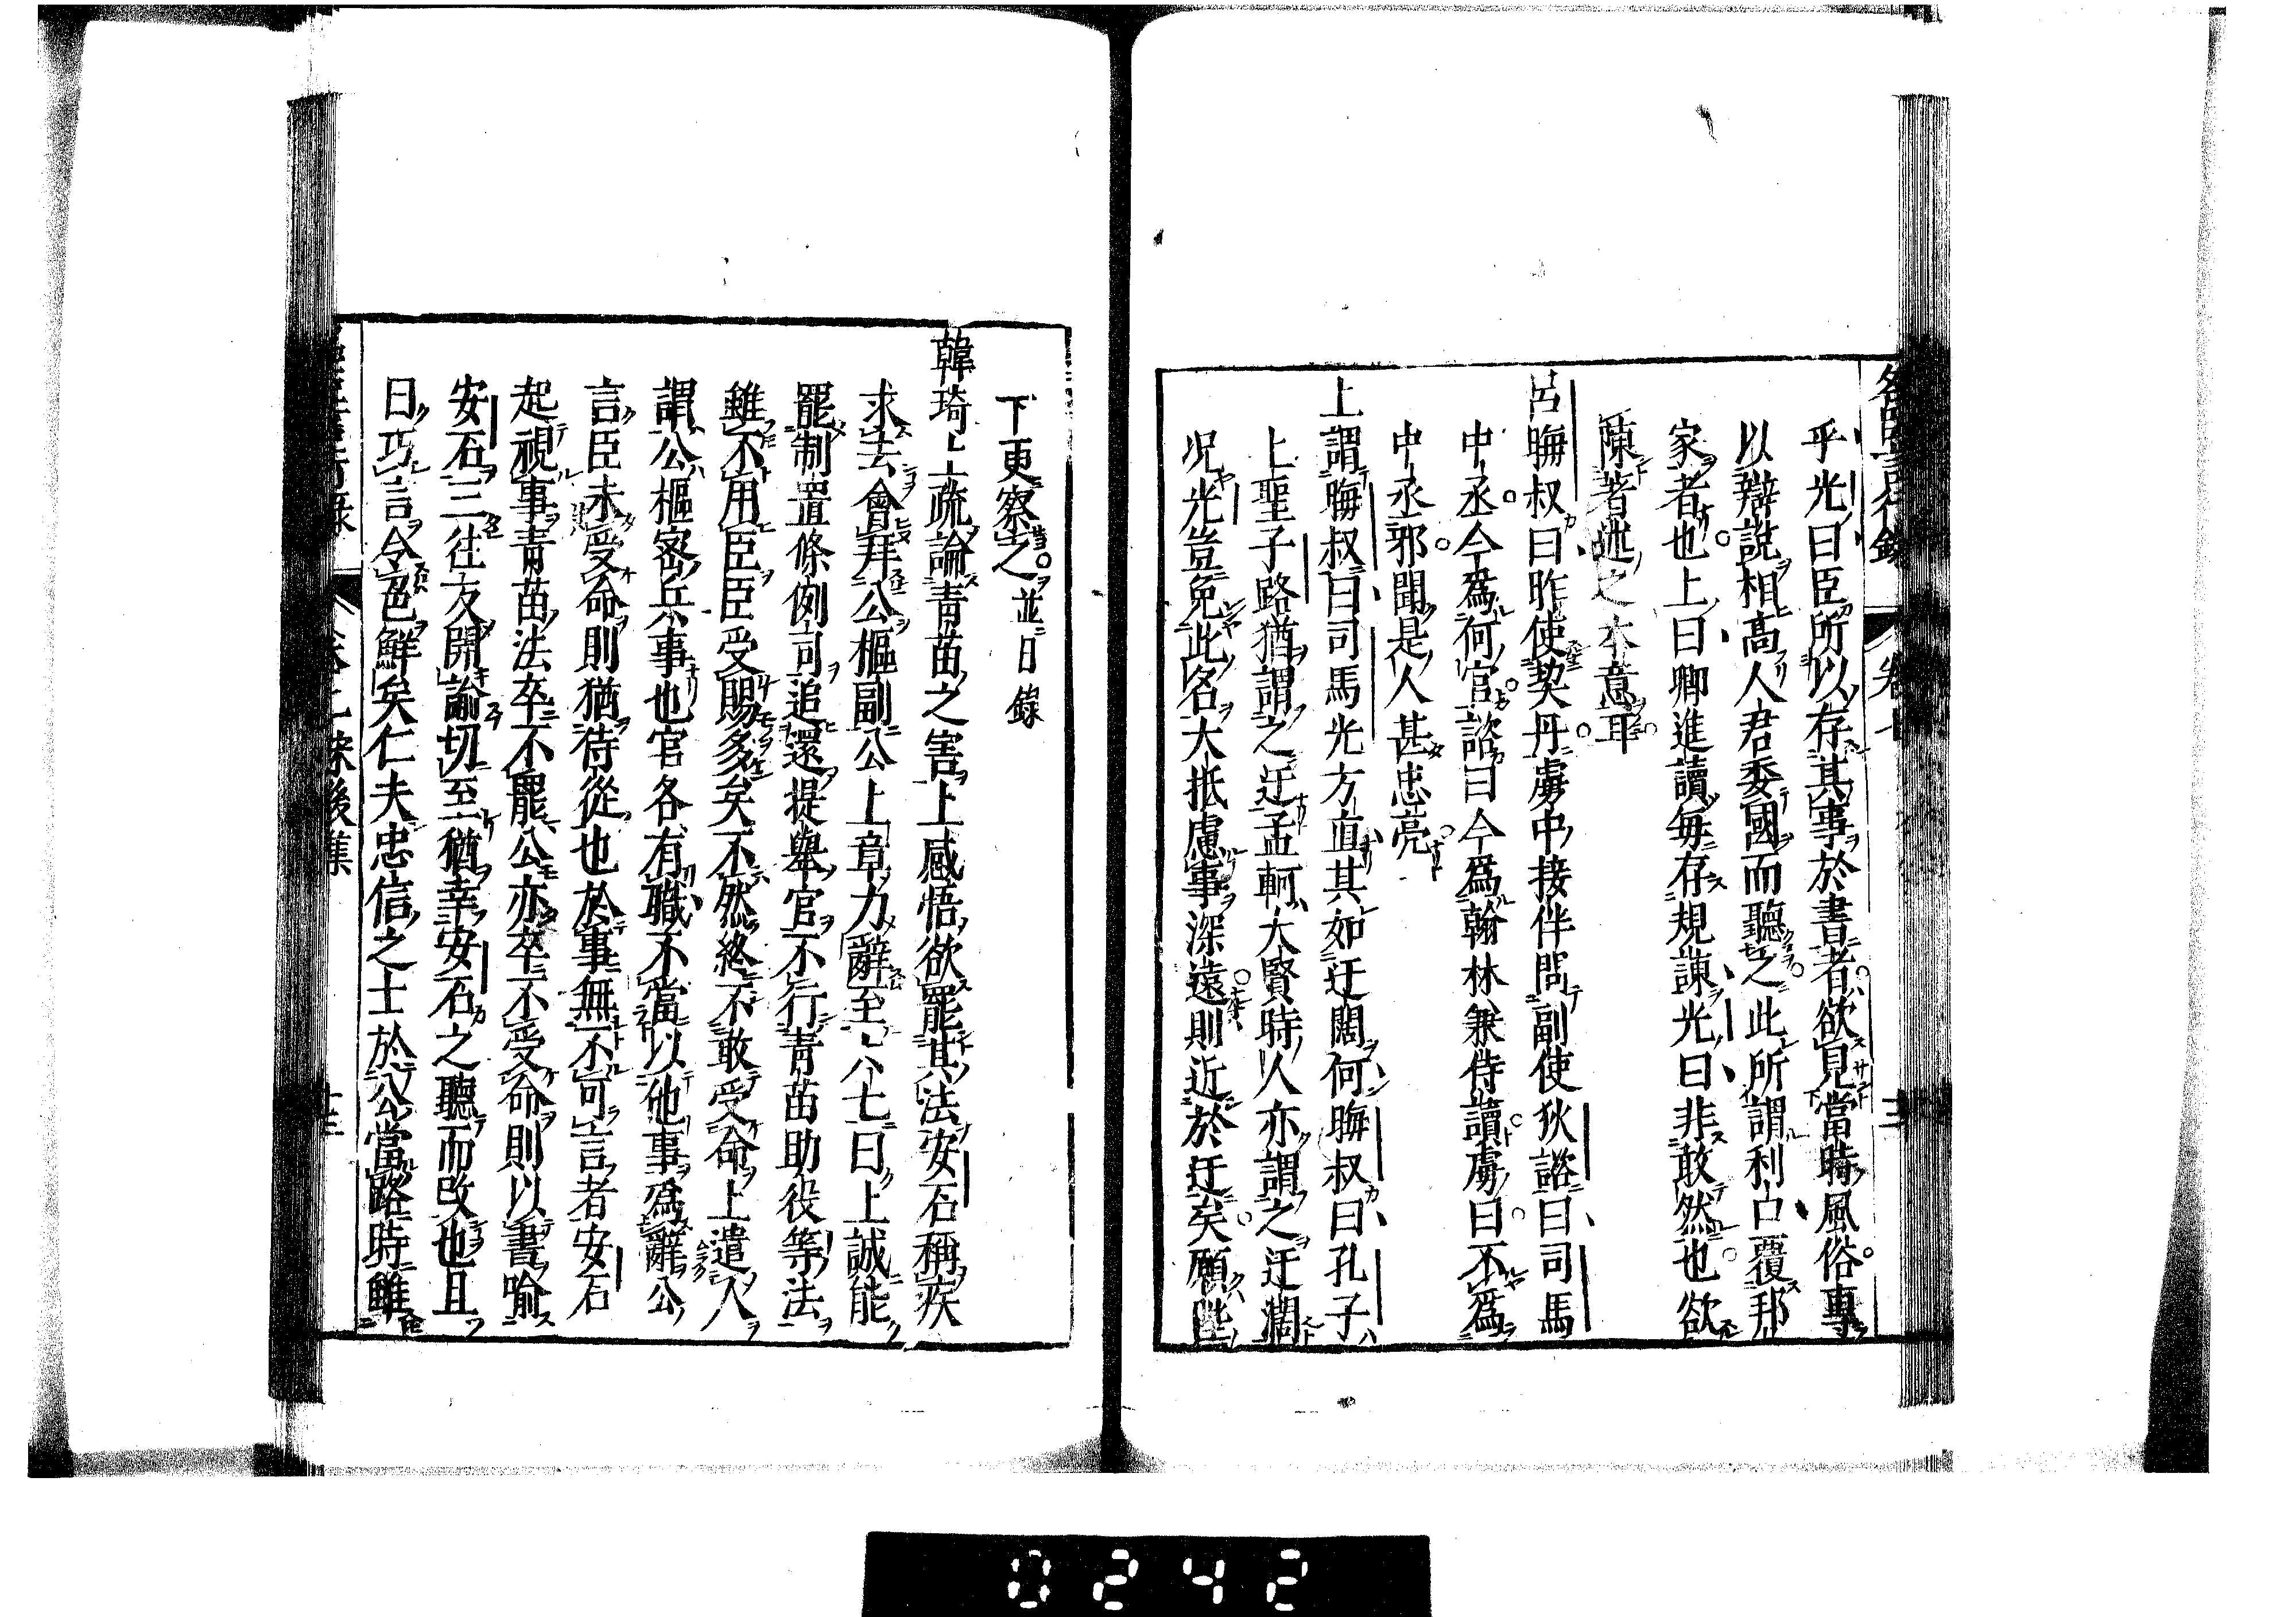 乎光曰臣所以存其事於書者欲見當時風俗專
以辯說相高人君委國而聽之此所謂利口覆邦
家者也上曰卿進讀每存規諫光曰非敢然也欲
陳著述之本意耳
呂晦叔曰昨使契丹虜中接伴問副使狄諮曰司馬
中丞今為何官諮曰今爲翰林兼侍讀虜曰不爲
中丞邪聞是人甚忠亮
上謂晦叔曰司馬光方直其如迂闊何晦叔曰孔子
上聖子路猶謂之迂孟軻大賢時人亦謂之迂濶
况光豈免此名大抵慮事深遠則近於迂矣願陛
下更察之並日錄
韓琦上疏論青苗之害上感悟欲罷其法安石稱疾
求去會拜公樞副公上章力辭至六七曰上誠能
罷制置條例司追還提舉官不行青苗助役等法
雖不用臣臣受賜多矣不然終不敢受命上遣人
謂公樞密兵事也官各有職不當以他事爲辭公
言臣未受命則猶侍從也於事無不可言者安石
起視事青苗法卒不罷公亦卒不受命則以書喻
安石三往友開諭切至猶幸安石之聽而改也且
曰巧言令色鮮矣仁夫忠信之士於公當路時雖
0242